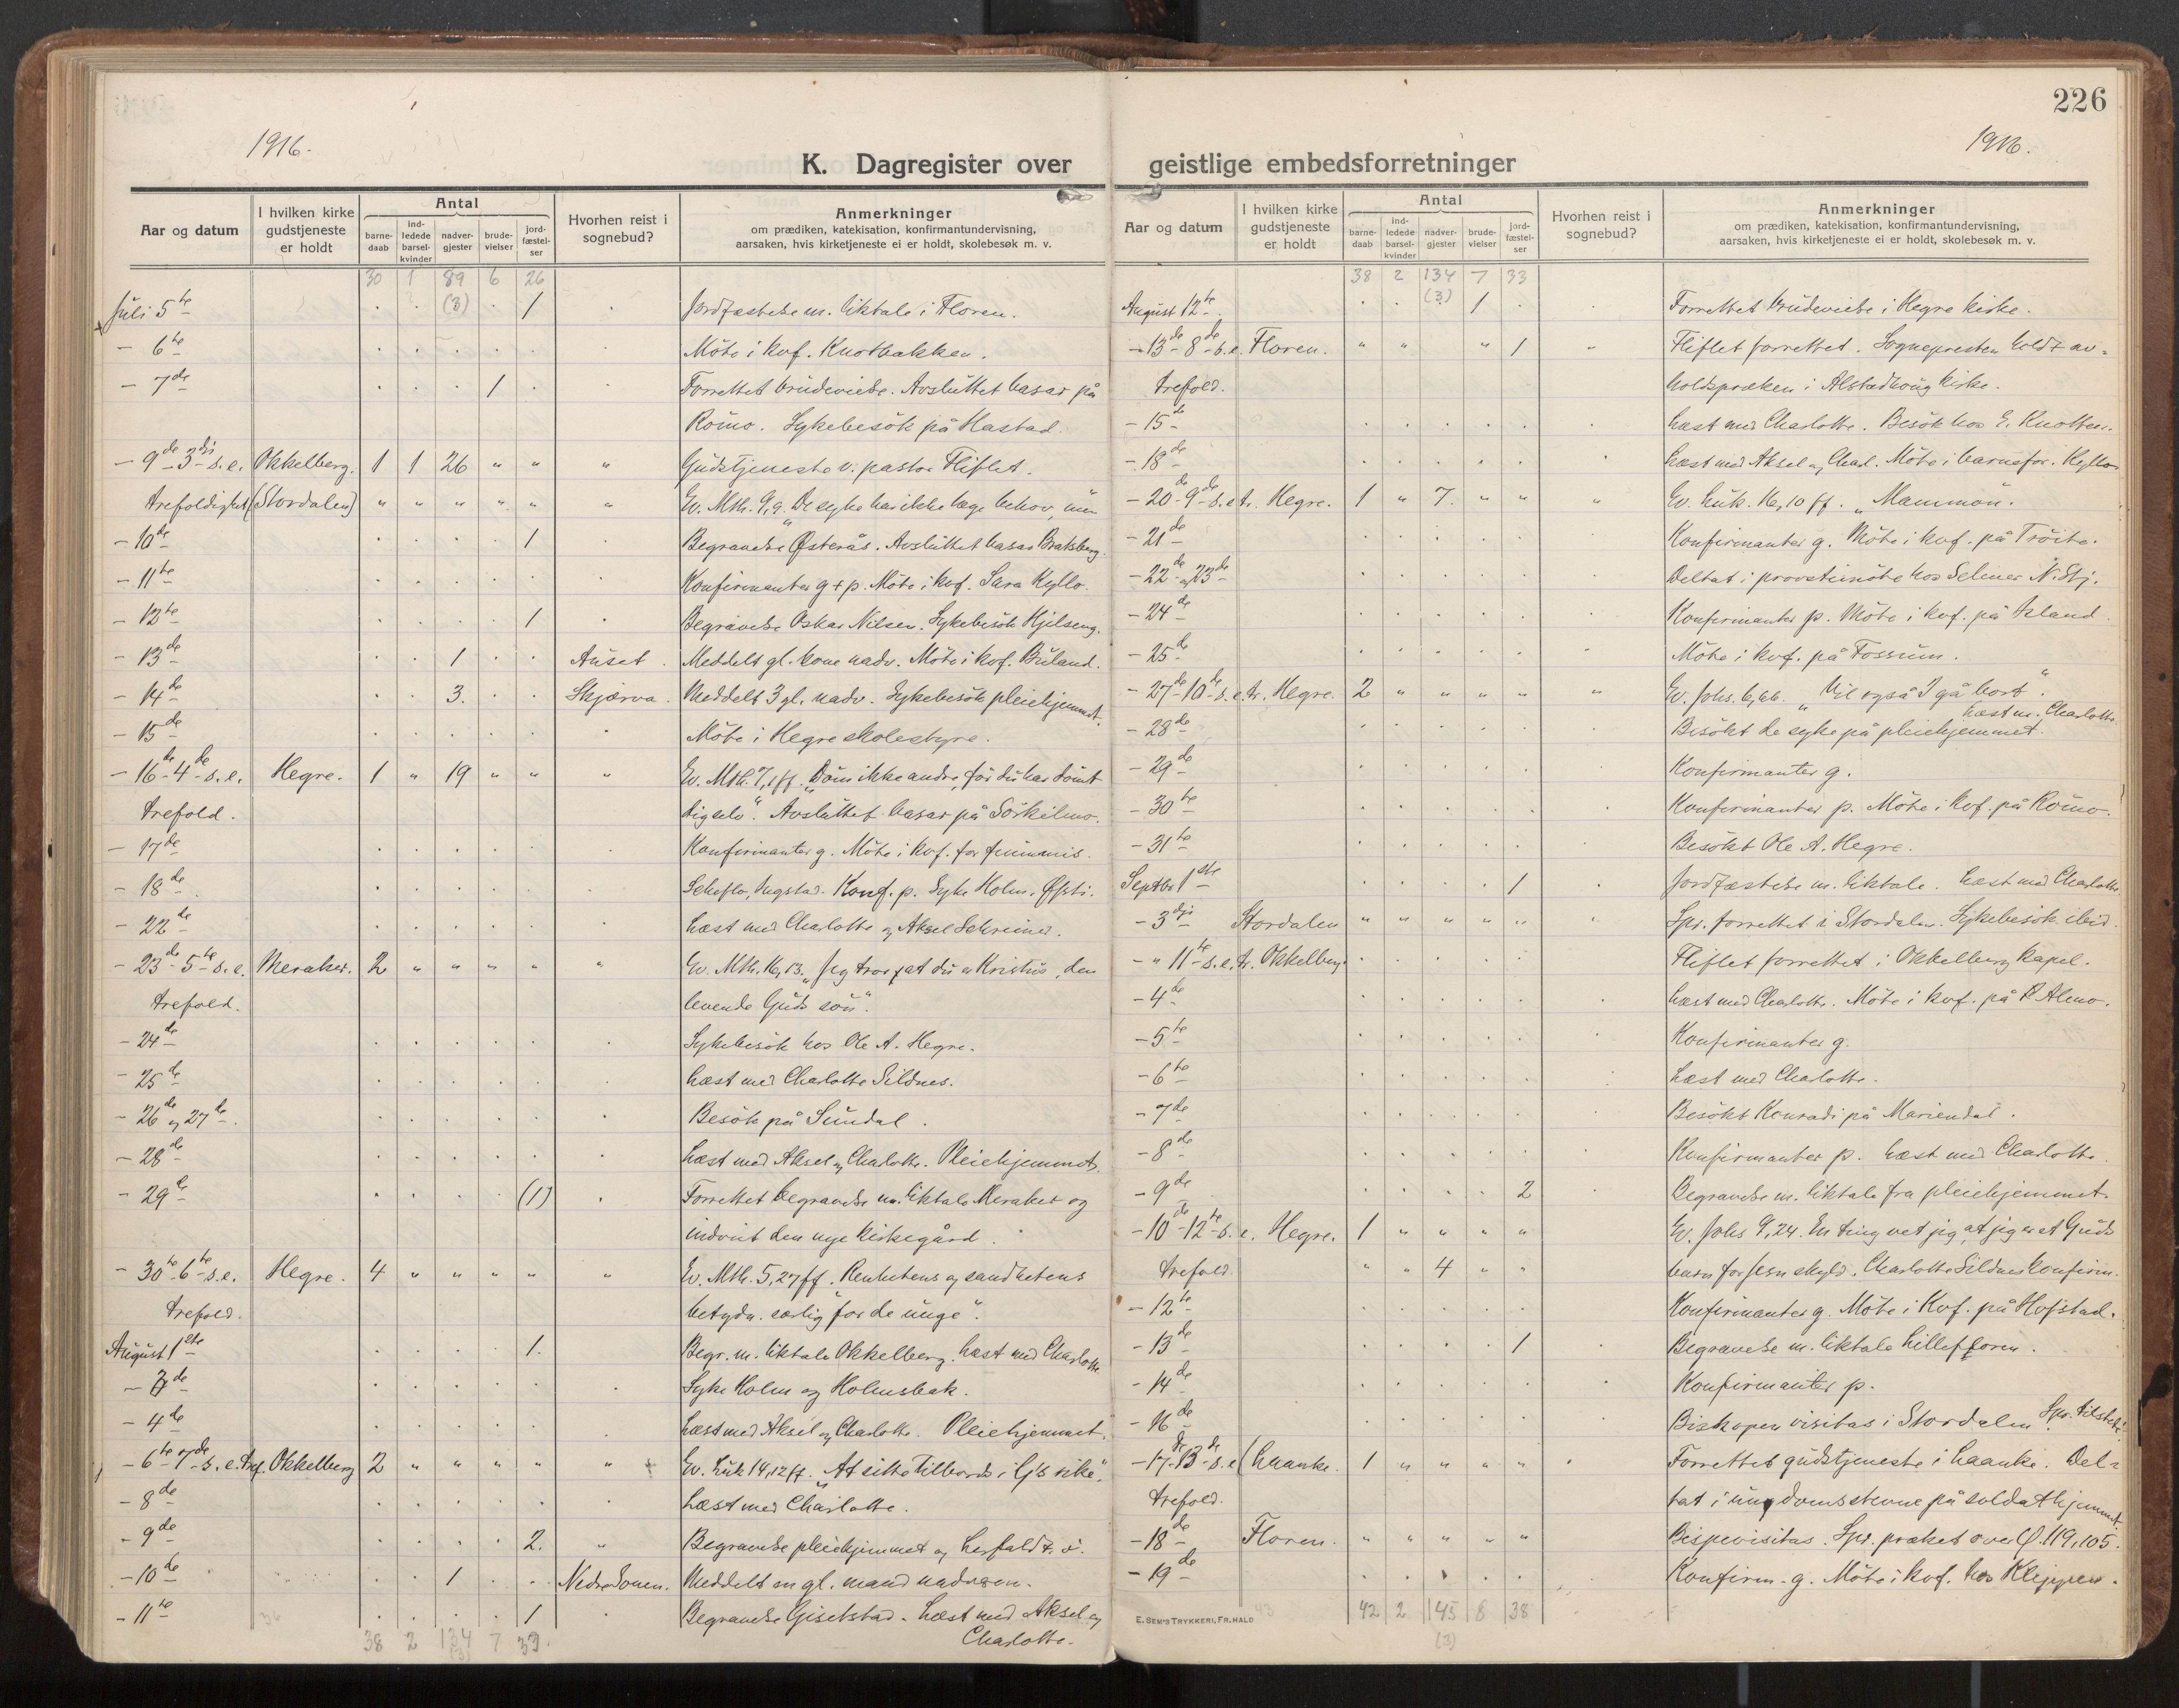 226
1916.
1916.
K. Dagregister over geistlige embedsforretninger
Aar og datum
I hvilken kirke gudstjeneste er holdt
Antal
barne-daab
ind-ledede barsel-kvinder
nadver-gjester
brude-vielser
jord-fæstel-ser
Hvorhen reist i sognebud?
Anmerkninger
om prædiken, katekisation, konfirmantundervisning,
aarsaken, hvis kirketjeneste ei er holdt, skolebesøk m. v.
30 1 89 6 26
Juli 5te (3) 1 Jordfæstelse m. liktale i Floren.
- 6te Möte i kvf. Knotbakken.
- 7de 1 Forrettet brudevielse. Avsluttet basar på
Römo. Sykebesök på Hastad.
- 9de 3dje s.e. Okkelberg. 1 1 26 " " " Gudstjeneste v. pastor Fliflet.
trefoldighet (Stordalen) " " " " " " Ev. Mth. 9,9. De syke har ikke læge behov,
- 10de 1 Begravelse Østerås. Avsluttet basar Bratsberg.
- 11te Konfirmanter g + p. Möte i kvf. Sara Kyllo.
- 12te 1 Begravelse Oskar Nilsen. Sykebesök Kjelseng.
- 13de 1 Auset. Meddelt gl. kone nadv. Möte i kvf. Buland.
- 14de 3. Skjærva. Meddelt 3 gl. nadv. Sykebesök pleiehjemmet.
- 15de Möte i Hegre skolestyre.
- 16de 4de s.e. Hegre. 1 " 19 " " " Ev. Mth. 7,1ff. "Döm ikke andre, för du har dömt
trefold. dig selv". Avsluttet basar på Sörkilmo.
- 17de Konfirmanter g. Möte i kvf. for
- 18de Ingstad. Konf. p. Syke Holm. Øfsti.
- 22de Læst med Charlotte og Aksel Schreiner.
- 23de 5te s.e. Meraker. 2 " " " " " Ev. Mth. 16,13. "Jeg tror at du er Kristus, den
trefold. levende Guds sön".
- 24de Sykebesök hos Ole A. Hegre.
- 25de Læst med Charlotte Sildnes.
- 26de og 27de. Besök på Sundal.
- 28de Læst med Aksel og Charlotte. Pleiehjemmet.
- 29de (1) Forrettet begravelse m. liktale Meraker og
indviet den nye kirkegård.
- 30te 6te s.e. Hegre. 4 " " " " " Ev. Mth. 5,27ff. Renhetens og sandhetens
trefold. betydn. særlig "for de unge".
August 1ste 1. Begr. m. liktale Okkelberg. Læst med Charlotte.
- 3de Syke Holm og Holmsbak.
- 4de Læst med Aksel og Charlotte. Pleiehjemmet.
- 6te 7de s.e. tref. Okkelberg 2 " " " " " Ev. Luk 14,12ff. "At sitte tilbords i G's rike".
- 8de Læst med Charlotte.
- 9de 2. " Begravelse pleiehjemmet og
- 10de 1 Nedre Monen. Meddelt en gl. mand nadveren.
- 11te 1 Begravelse Gisetstad. Læst med Aksel og
Charlotte.
38 2 134 7 33.
(3)
Aar og datum
I hvilken kirke gudstjeneste er holdt
Antal
barne-daab
ind-ledede barsel-kvinder
nadver-gjester
brude-vielser
jord-fæstel-ser
Hvorhen reist i sognebud?
Anmerkninger
om prædiken, katekisation, konfirmantundervisning,
aarsaken, hvis kirketjeneste ei er holdt, skolebesøk m. v.
38 2 134 7 33
August 12te (3) 1 Forrettet brudevielse i Hegre kirke.
- 13de 8de s.e. Floren. " " " 1 " Fliflet forrettet. Sognepresten holdt av-
trefold. holdspræken i Alstadhoug kirke.
- 15de Læst med Charlotte. Besök hos E. Knotten.
- 18de Læst med Aksel og Charl. Möte i barnefor. Kyllo
- 20de 9de s.e. tr. Hegre. 1 " 7. " " " Ev. Luk. 16,10 ff. "Mammon".
- 21de Konfirmanter g. Möte i kvf. på Tröite.
- 22de og 23de Deltat i provstimöte hos Selmer N. Stj.
- 24de Konfirmanter p. Möte i kvf. på Asland.
- 25de Möte i kvf. på Fossum.
- 27de 10de s.e. tr. Hegre. 2 " " " " " Ev. Johs. 6,66. "Vil også I gå bort".
- 28de Besökt de syke på pleiehjemmet. Læst m. Charlotte
- 29de Konfirmanter g.
- 30te Konfirmanter p. Möte i kvf. på Römo.
- 31te Besökt Ole A. Hegre.
Septbr 1ste 1 Jordfæstelse m. liktale. Læst med Charlotte.
- 3dje Stordalen " " " " " " Spr. forrettet i Stordalen. Sykebesök ibid.
- " 11te s.e. tr. Okkelberg. Fliflet forrettet i Okkelberg kapel.
- 4de Læst med Charlotte. Möte i kvf. på R. Almo.
- 5te Konfirmanter g.
- 6te Læst med Charlotte.
- 7de Besökt Konradi på Mariendal.
- 8de Konfirmanter p. Læst med Charlotte
- 9de 2 Begravelse m. liktale fra pleiehjemmet.
- 10de 12te s.e. Hegre. 1 " " " " Ev. Johs 9,24. En ting vet jeg, at jeg er et Guds
trefold " " 4 " " barn for Jesu skyld. Charlotte Sildnes konfirm.
- 12te Konfirmanter g. Möte i Kvf. på Hofstad.
- 13de 1 Begravelse m. liktale Lillefloren.
- 14de Konfirmanter p.
- 16de Biskopen visitas i Stordalen. Spr. tilstede.
- 17de 13de s.e. (Laanke. 1 " " " " Forrettet gudstjeneste i Laanke. Del-
trefold. tat i ungdomsstevne på soldathjemmet.
- 18de Floren. " " " " " Bispevisitas. Spr. præket over Ψ. 119,105.
- 19de Konfirm. g. Möte i kvf. hos Kleppen.
E. SEM'S TRYKKERI, FR.HALD
43 42 2 145 8 38
(3)